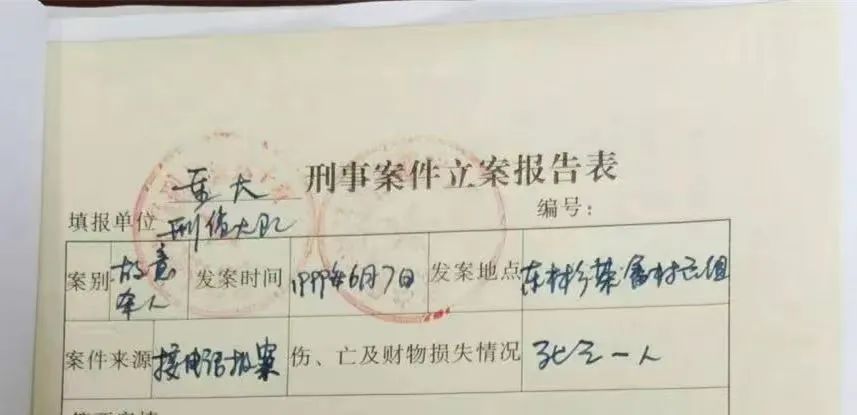 重大 刑事案件立案报告表
填报单位 刑侦大队 编号：
案别 故意杀人 发案时间 1999年6月7日 发案地点 东林乡 村民组
案件来源 接电话报案 伤、亡及财物损失情况 死亡一人